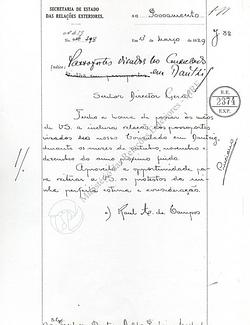 SECRETARIA DE ESTADO
DAS RELAÇÕES EXTERIORES.
Passamento
em de março de 1929
Indice: Passaportes visados no Consulado
em Dantzig
Senhor Director Geral
Tenho a honra de passar ás mãos
de V.S. a inclusa relação dos passaportes
visados no nosso Consulado em Dantzig,
durante os mezes de outubro, novembro e
dezembro do anno proximo findo.
Aproveito a opportunidade pa-
ra reiterar a V.S. os protestos da mi-
nha perfeita estima e consideração.
a) Raul A. de Campos
R.E.
2374
EXP.